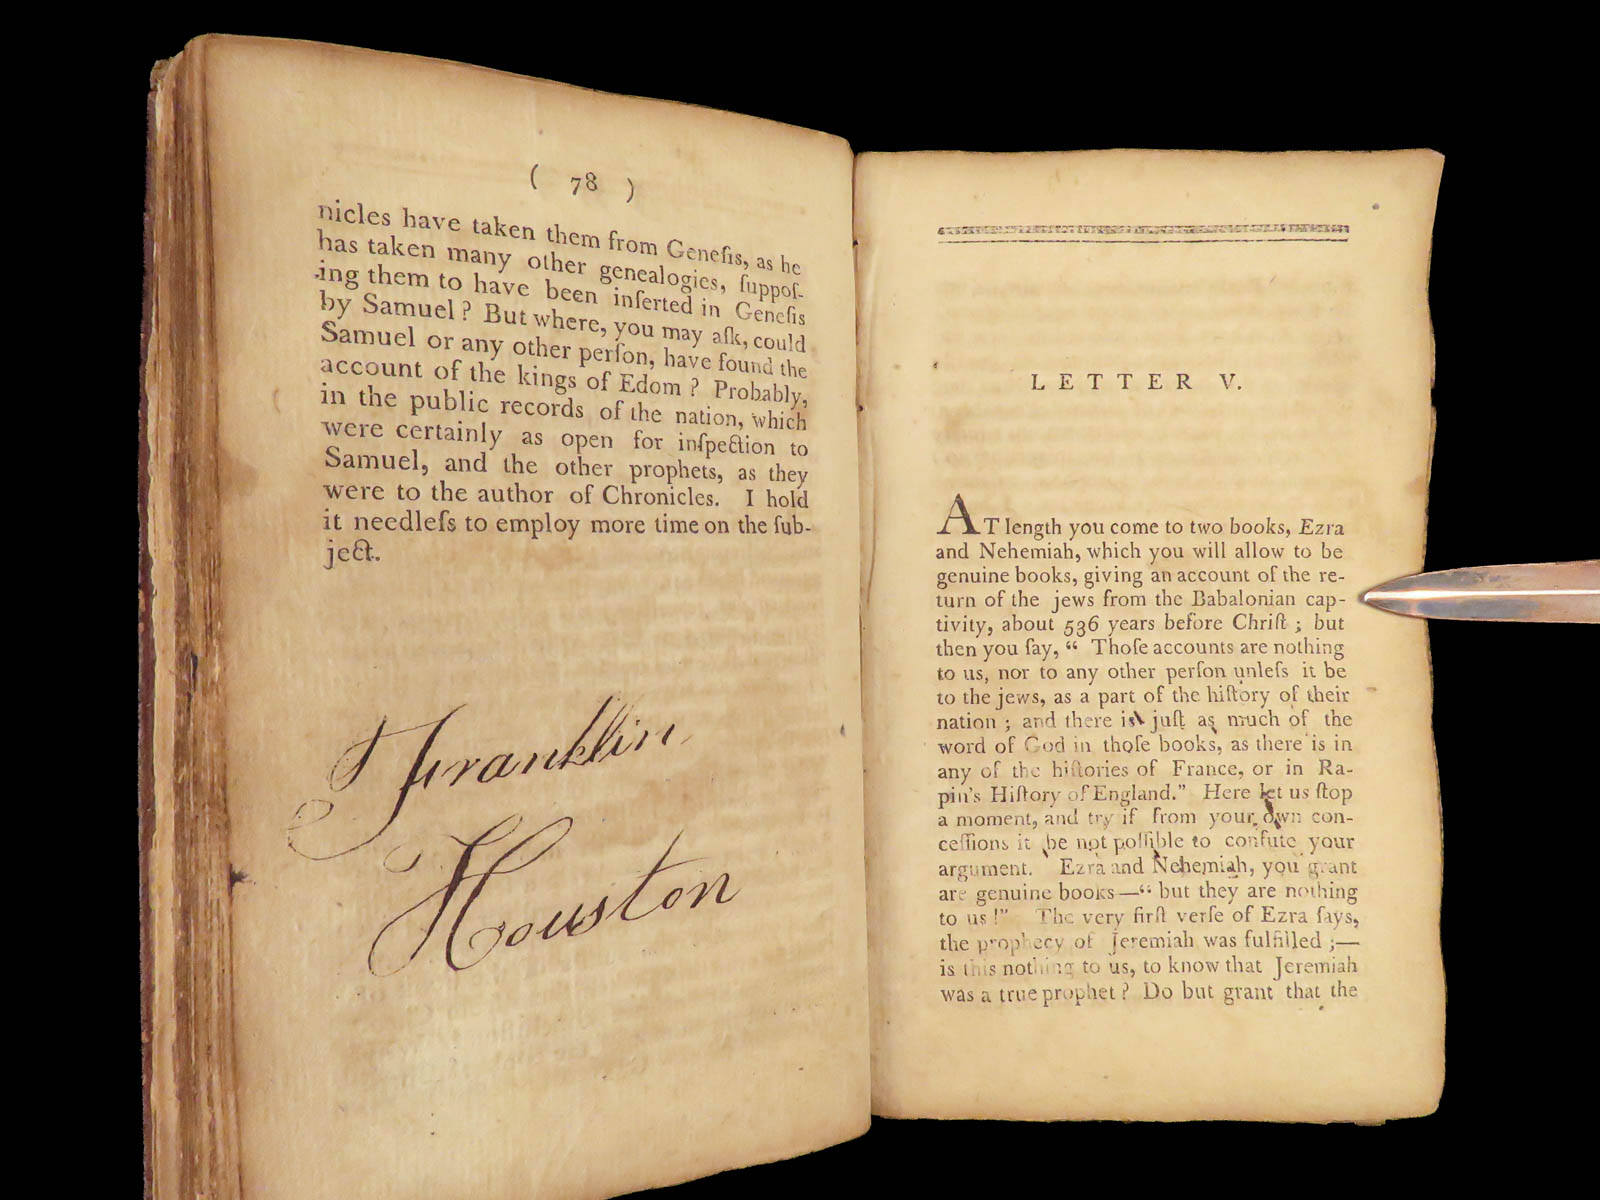 ( 78 )
nicles have taken them from Geneſis, as he
has taken many other genealogies, ſuppoſ-
ing them to have been inſerted in Geneſis
by Samuel? But where, you may aſk, could
Samuel or any other perſon, have found the
account of the kings of Edom? Probably,
in the public records of the nation, which
were certainly as open for inſpection to
Samuel, and the other prophets, as they
were to the author of Chronicles. I hold
it needleſs to employ more time on the ſub-
ject.
Franklin
Houston
LETTER V.
AT length you come to two books, Ezra
and Nehemiah, which you will allow to be
genuine books, giving an account of the re-
turn of the jews from the Babalonian cap-
tivity, about 536 years before Chriſt; but
then you ſay, “ Thoſe accounts are nothing
to us, nor to any other perſon unleſs it be
to the jews, as a part of the hiſtory of their
nation; and there is juſt as much of the
word of God in thoſe books, as there is in
any of the hiſtories of France, or in Ra-
pin's Hiſtory of England.” Here let us ſtop
a moment, and try if from your own con-
ceſſions it be not poſſible to confute your
argument. Ezra and Nehemiah, you grant
are genuine books—“ but they are nothing
to us!” The very firſt verſe of Ezra ſays,
the prophecy of Jeremiah was fulfilled;—
is this nothing to us, to know that Jeremiah
was a true prophet? Do but grant that the